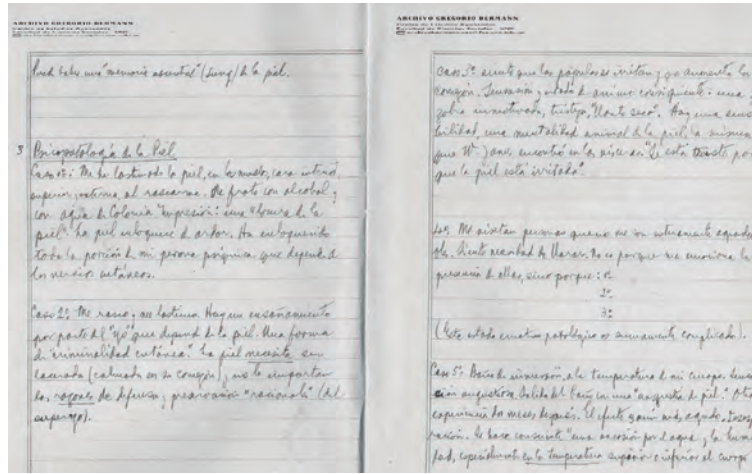 ARCHIVO GREGORIO BERMANN
Puede haber una "memoria ancestral" (Jung) de la piel.
3 Psicopatología de la Piel
Caso 1º: Me he lastimado la piel, en los muslos, cara interna,
superior, externa, al rascarme. Me froto con alcohol y
con agua de Colonia. Impresión: una "locura de la
piel". La piel enloquece de ardor. Ha enloquecido
toda la porción de mi persona psíquica que depende de
los nervios cutáneos.
Caso 2º: Me rasco y me lastimo. Hay un ensañamiento
por parte del "yo" que depende de la piel. Una forma
de "criminalidad cutánea". La piel necesita ser
lacerada (calmada en su comezón) y no le importan
las razones de defensa y preservación "racionales" (del
superyo).
ARCHIVO GREGORIO BERMANN
Caso 3º: siento que las pápulas se irritan y aumenta la
comezón. Sensación y estado de ánimo consiguiente: una
zobra inmotivada, tristeza, "llanto seco". Hay una sensi
bilidad, una mentalidad animal de la piel, la misma
que W. James encontró en las vísceras. "Se está triste por
que la piel está irritada".
4º: Me visitan personas que no me son enteramente agrada
bles. Siento necesidad de llorar. No es porque me emociona la
presencia de ellas, sino porque: 1º
2º
3º
(Este estado emotivo patológico es sumamente complicado).
Caso 5º: Baño de inmersión, a la temperatura de mi cuerpo. Sensa
ción angustiosa. Salida del baño en una "angustia de piel". Otra
experiencia dos meses después. El efecto aún más agudo.
Se hace consciente una por el agua y la hume
dad, especialmente en la temperatura superior o inferior al cuerpo